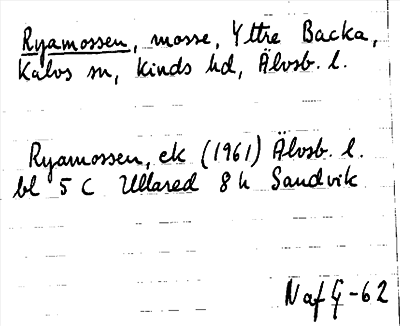 Ryamossen, mosse, Yttre Backa,
Kalvs sn, Kinds hd, Älvsb. l.
Ryamossen, ek (1961) Älvsb. l.
bl 5 C Ullared 8 h Sandvik
Naf G-62